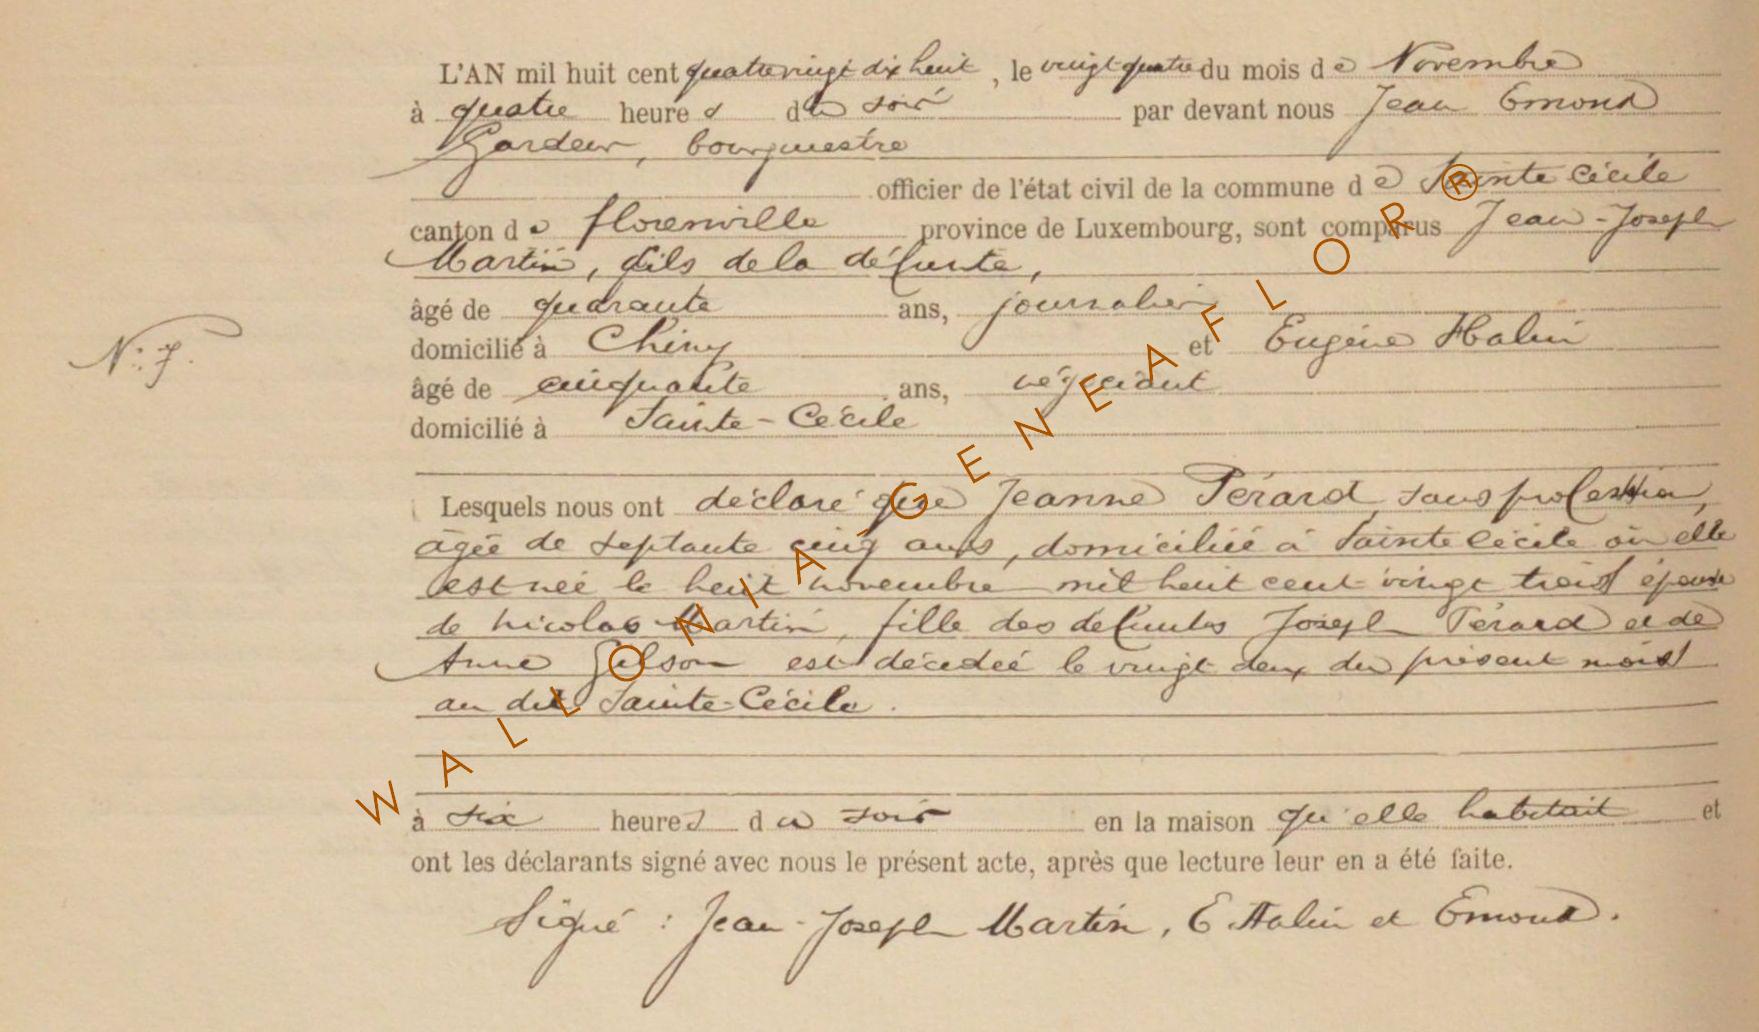 L'AN mil huit cent quatrevingt dix huit, le vingt quatre du mois de Novembre
à quatre heures du soir par devant nous Jean Emond
Gardeur, bourgmestre
officier de l'état civil de la commune de Sainte Cécile
canton de florenville province de Luxembourg, sont comparus Jean-Joseph
Martin, fils de la défunte,
âgé de quarante ans, journalier
N: 7.
domicilié à Chiny et Eugène Halin
âgé de cinquante ans, négociant
domicilié à Sainte-Cécile
Lesquels nous ont déclaré que Jeanne Pérard, sans profession,
âgée de septante cinq ans, domiciliée à Sainte Cécile où elle
est née le huit novembre mil huit cent vingt trois épouse
de Nicolas Martin, fille des défunts Joseph Pérard et de
Anne Gilson est décédée le vingt deux du présent mois
au dit Sainte-Cécile.
à six heures du soir en la maison qu'elle habitait et
ont les déclarants signé avec nous le présent acte, après que lecture leur en a été faite.
Signé : Jean-Joseph Martin, E Halin et Emond.
WALLONIA-GENEAFLOR®